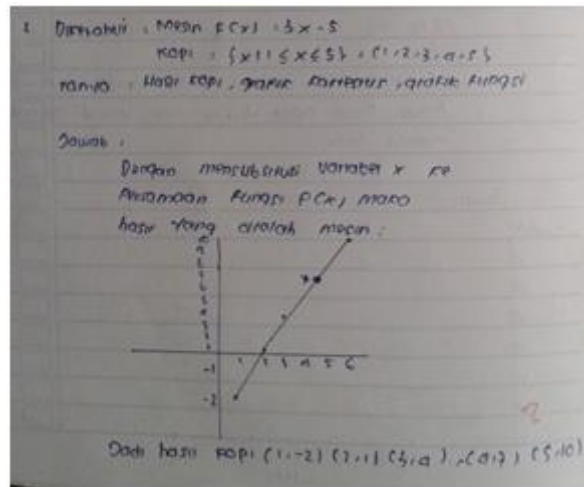 1 Diketahui : Mesin F(x) = 3x - 5
Kopi : {x | 1 ≤ x ≤ 5} = {1, 2, 3, 4, 5}
Tanya : Hasil kopi, grafik kartesius, grafik fungsi
Jawab :
Dengan mensubstitusi variabel x ke
Persamaan fungsi F(x) maka
hasil yang diolah mesin :
7
1 2 3 4 5 6
-1
-2
Jadi hasil kopi (1,-2) (2,1) (3,4), (4,7) (5,10)